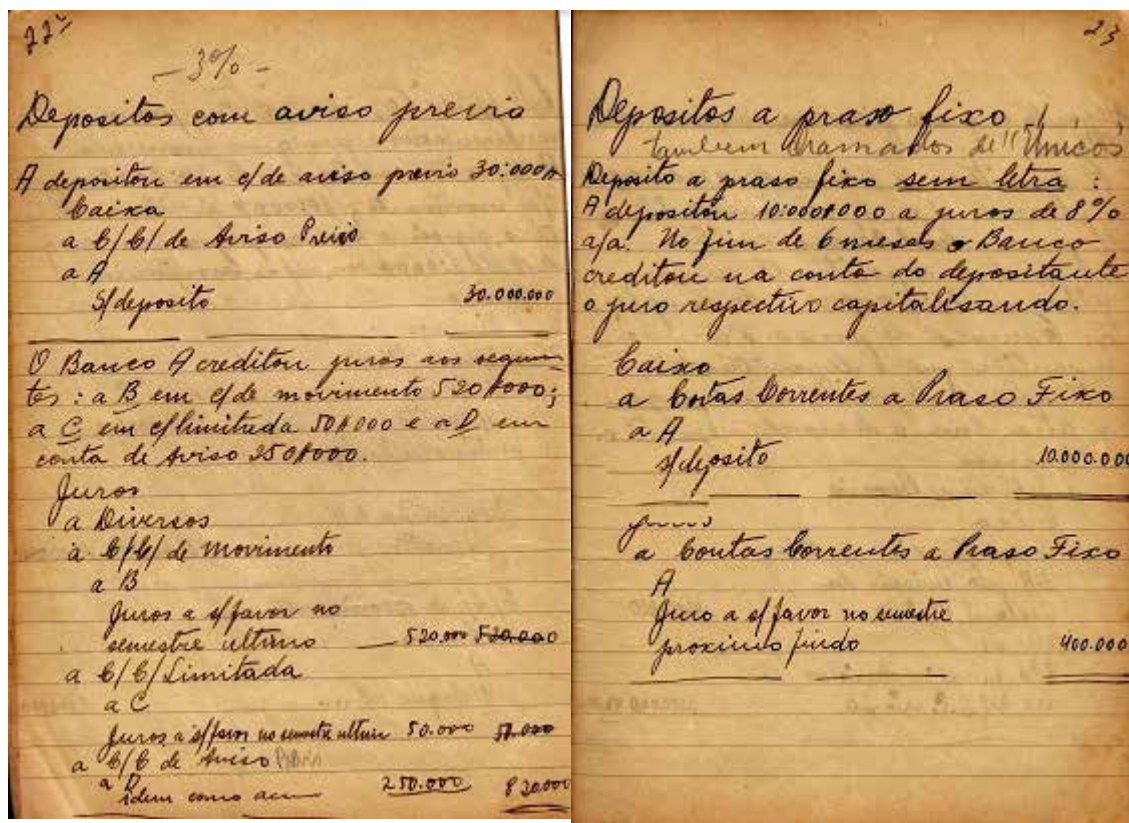 22
- 3% -
Depositos com aviso previo
A depositou em c/ de aviso previo 30:000$
Caixa
a C/C/ de Aviso Previo
a A
S/ deposito 30.000.000
O Banco A creditou juros aos seguin-
tes: a B em c/ de movimento 520$000;
a C em c/ limitada 50$000 e a D em
conta de Aviso 250$000.
Juros
a Diversos
a C/C/ de movimento
a B
Juros a s/ favor no
semestre ultimo 520.000 520.000
a C/C/ Limitada
a C
Juros a s/ favor no semestre ultimo 50.000 50.000
a C/C de Aviso Previo
a D
idem como acima 250.000 820.000
23
Depositos a praso fixo
tambem chamados de "Unicos"
Deposito a praso fixo sem letra:
A depositou 10:000$000 a juros de 8%
a/a. No fim de 6 meses o Banco
creditou na conta do depositante
o juro respectivo capitalisando.
Caixa
a Contas Correntes a Praso Fixo
a A
s/ deposito 10.000.000
Juros
a Contas Correntes a Praso Fixo
A
Juro a s/ favor no semestre
proximo findo 400.000